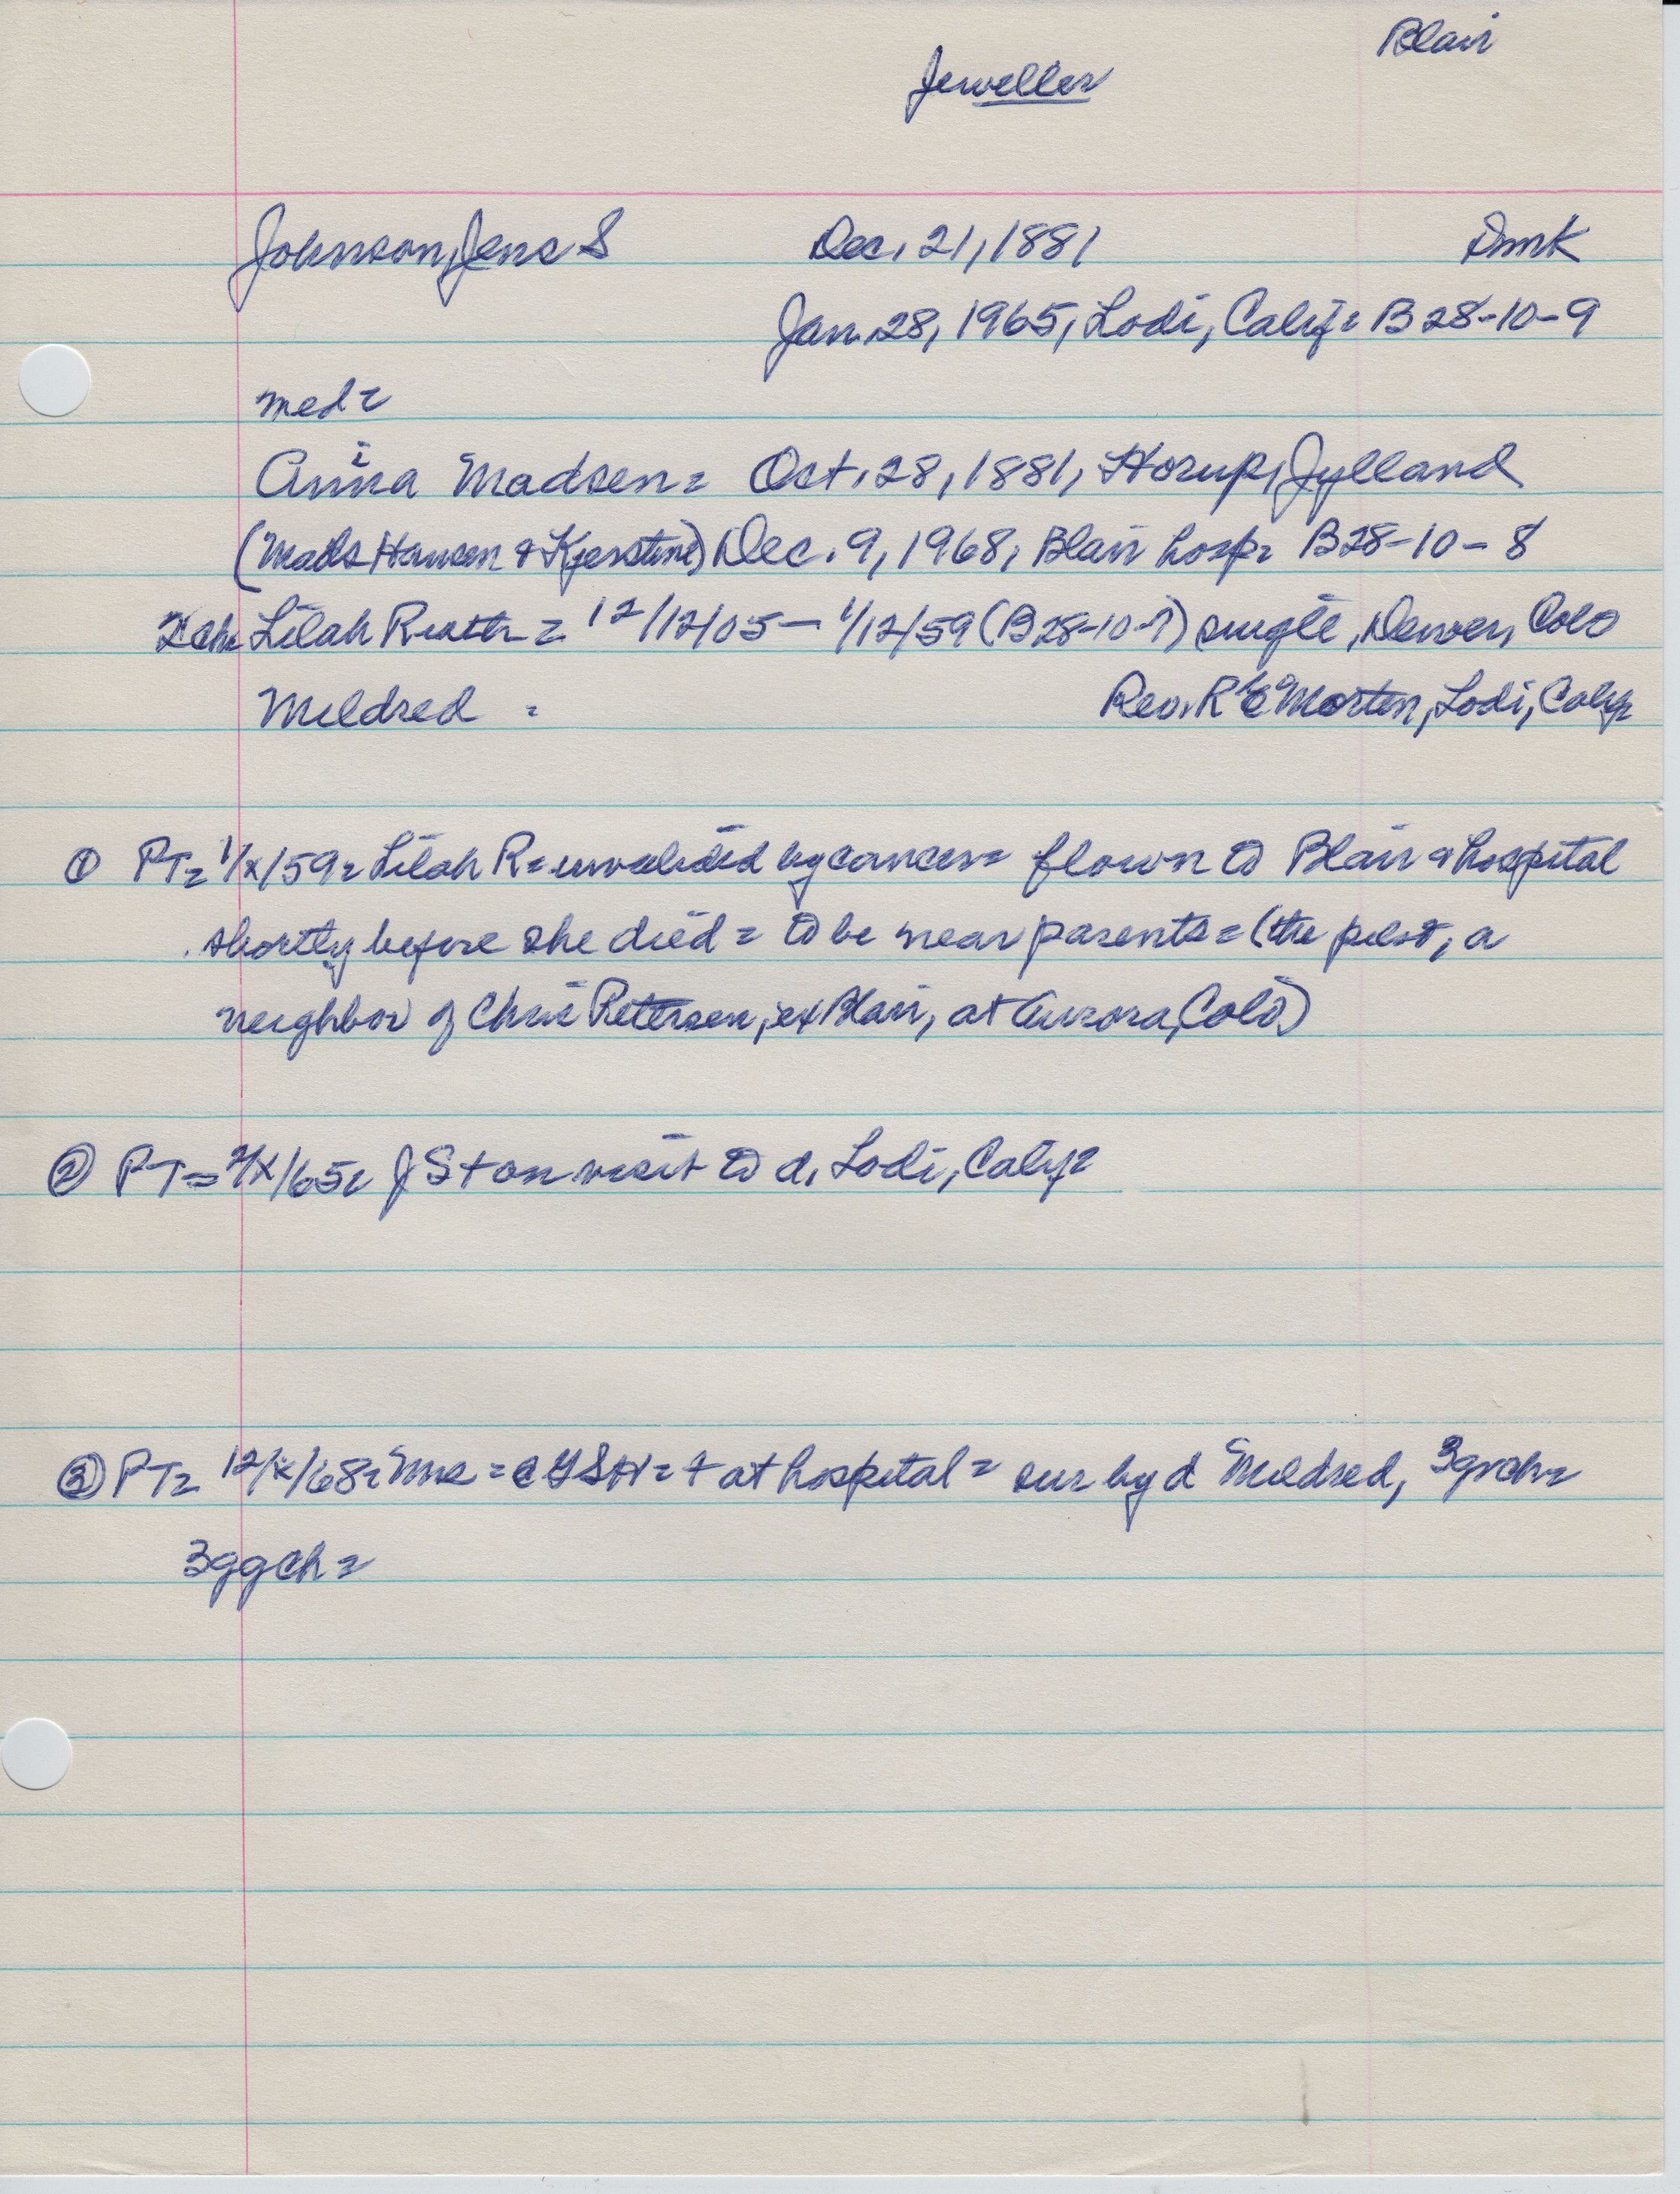 Blair
Jeweller
Johnson, Jens S Dec. 21, 1881 Dmk
Jan. 28, 1965, Lodi, Calif= B 28-10-9
med=
Anna Madsen= Oct. 28, 1881, Horup, Jylland
(Mads Hansen & Kjerstine) Dec. 9, 1968, Blair hosp= B28-10-8
2 ch= Lilah Ruth= 12/12/05 - 1/12/59 (B28-10-7) single, Denver, Colo
Mildred = Rev. R E Morten, Lodi, Calif
① PT= 1/x/59= Lilah R= invalided by cancer= flown to Blair & hospital
shortly before she died= to be near parents= (the pilot, a
neighbor of Chris Petersen, ex Blair, at Aurora, Colo)
② PT= 2/x/65= J S + on visit to d, Lodi, Calif=
③ PT= 12/x/68= Mrs = + at hospital= sur by d Mildred, 3 grch=
3 ggch=